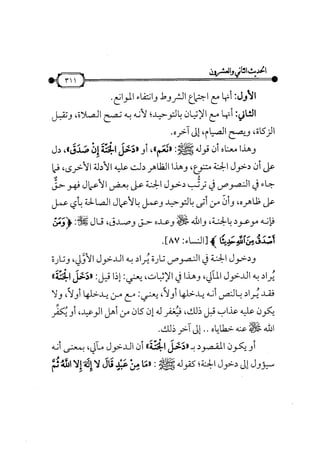 الحديث الثاني والعشرون
٣١١
الأول: أنها مع اجتماع الشروط وانتفاء الموانع.
الثاني: أنها مع الإتيان بالتوحيد؛ لأنه به تصح الصلاة، وتقبل
الزكاة، ويصح الصيام، إلى آخره.
وهذا معناه أن قوله ﷺ: «نَعَم»، أو «دَخَلَ الجَنَّةَ إِنْ صَدَقَ»، دل
على أن دخول الجنة متنوع، وهذا الظاهر دلت عليه الأدلة الأخرى، فما
جاء في النصوص في ترتُّب دخول الجنة على بعض الأعمال فهو حقٌّ
على ظاهره، وأن من أتى بالتوحيد وعمل بالأعمال الصالحة بأي عمل
فإنه موعود بالجنة، والله ﷻ وعده حق وصدق، قال ﷻ: ﴿وَمَنْ
أَصْدَقُ مِنَ اللَّهِ حَدِيثًا﴾ [النساء: ٨٧].
ودخول الجنة في النصوص تارة يُراد به الدخول الأوَّلي، وتارة
يُراد به الدخول المآلي، وهذا في الإثبات، يعني: إذا قيل: «دَخَلَ الجَنَّةَ»
فقد يُراد بالنص أنه يدخلها أولًا، يعني: مع من يدخلها أولًا، ولا
يكون عليه عذاب قبل ذلك، فيُغفر له إن كان من أهل الوعيد، أو يُكفِّر
الله ﷻ عنه خطاياه .. إلى آخر ذلك.
أو يكون المقصود بـ «دَخَلَ الجَنَّةَ» أن الدخول مآلي، بمعنى أنه
سيؤول إلى دخول الجنة؛ كقوله ﷺ: «مَا مِنْ عَبْدٍ قَالَ لَا إِلَهَ إِلَّا اللهُ ثُمَّ